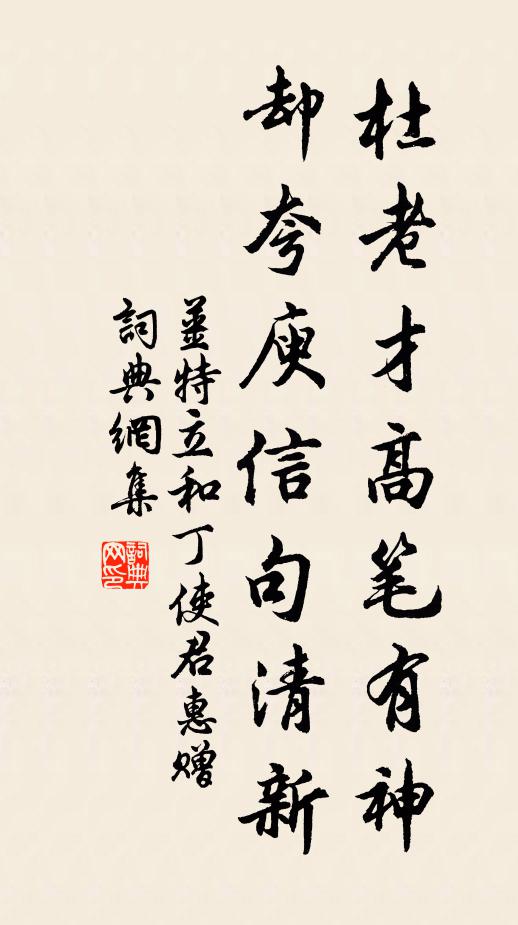 杜老才高笔有神
却夸庾信句清新
姜特立和丁使君惠赠
詞典網集
詞典网印